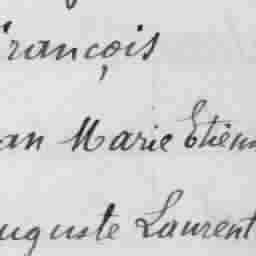 François
an Marie Etienn
uguste Laurent